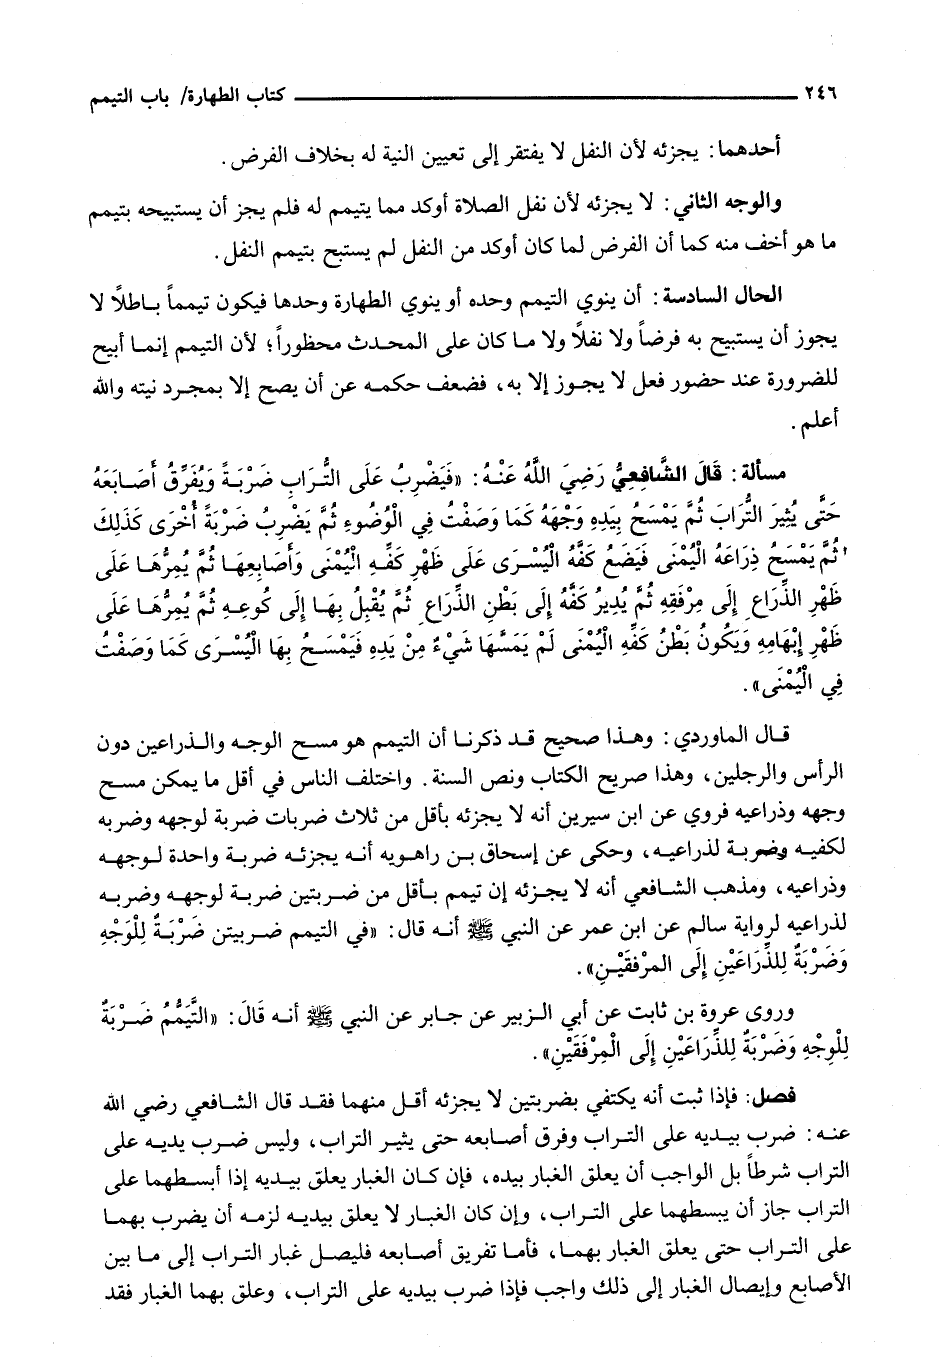 ٢٤٦ ــــــــــــــــــــ كتاب الطهارة/ باب التيمم
أحدهما: يجزئه لأن النفل لا يفتقر إلى تعيين النية له بخلاف الفرض.
والوجه الثاني: لا يجزئه لأن نفل الصلاة أوكد مما يتيمم له فلم يجز أن يستبيحه بتيمم
ما هو أخف منه كما أن الفرض لما كان أوكد من النفل لم يستبح بتيمم النفل.
الحال السادسة: أن ينوي التيمم وحده أو ينوي الطهارة وحدها فيكون تيمماً باطلاً لا
يجوز أن يستبيح به فرضاً ولا نفلاً ولا ما كان على المحدث محظوراً؛ لأن التيمم إنما أبيح
للضرورة عند حضور فعل لا يجوز إلا به، فضعف حكمه عن أن يصح إلا بمجرد نيته والله
أعلم.
مسألة: قَالَ الشَّافِعِيُّ رَضِيَ اللَّهُ عَنْهُ: «فَيَضْرِبُ عَلَى التُّرَابِ ضَرْبَةً وَيُفَرِّقُ أَصَابَعَهُ
حَتَّى يُثِيرَ التُّرَابَ ثُمَّ يَمْسَحُ بِيَدِهِ وَجْهَهُ كَمَا وَصَفْتُ فِي الْوُضُوءِ ثُمَّ يَضْرِبُ ضَرْبَةً أُخْرَى كَذَلِكَ
ثُمَّ يَمْسَحُ ذِرَاعَهُ الْيُمْنَى فَيَضَعُ كَفَّهُ الْيُسْرَى عَلَى ظَهْرِ كَفِّهِ الْيُمْنَى وَأَصَابِعِهَا ثُمَّ يُمِرُّهَا عَلَى
ظَهْرِ الذِّرَاعِ إِلَى مِرْفَقِهِ ثُمَّ يُدِيرُ كَفَّهُ إِلَى بَطْنِ الذِّرَاعِ ثُمَّ يُقْبِلُ بِهَا إِلَى كُوعِهِ ثُمَّ يُمِرُّهَا عَلَى
ظَهْرِ إِبْهَامِهِ وَيَكُونُ بَطْنُ كَفِّهِ الْيُمْنَى لَمْ يَمَسَّهَا شَيْءٌ مِنْ يَدِهِ فَيَمْسَحُ بِهَا الْيُسْرَى كَمَا وَصَفْتُ
فِي الْيُمْنَى».
قال الماوردي: وهذا صحيح قد ذكرنا أن التيمم هو مسح الوجه والذراعين دون
الرأس والرجلين، وهذا صريح الكتاب ونص السنة. واختلف الناس في أقل ما يمكن مسح
وجهه وذراعيه فروي عن ابن سيرين أنه لا يجزئه بأقل من ثلاث ضربات ضربة لوجهه وضربه
لكفيه وضربة لذراعيه، وحكى عن إسحاق بن راهويه أنه يجزئه ضربة واحدة لوجهه
وذراعيه، ومذهب الشافعي أنه لا يجزئه إن تيمم بأقل من ضربتين ضربة لوجهه وضربه
لذراعيه لرواية سالم عن ابن عمر عن النبي ﷺ أنه قال: «في التيمم ضربيتن ضَرْبَةٌ لِلْوَجْهِ
وَضَرْبَةٌ لِلذِّرَاعَيْنِ إِلَى المرْفقَيْنِ».
وروى عروة بن ثابت عن أبي الزبير عن جابر عن النبي ﷺ أنه قَالَ: «التَّيَمُّمُ ضَرْبَةٌ
لِلْوِجْهِ وَضَرْبَةٌ لِلذِّرَاعَيْنِ إِلَى الْمِرْفَقَيْنِ».
فصل: فإذا ثبت أنه يكتفي بضربتين لا يجزئه أقل منهما فقد قال الشافعي رضي الله
عنه: ضرب بيديه على التراب وفرق أصابعه حتى يثير التراب، وليس ضرب يديه على
التراب شرطاً بل الواجب أن يعلق الغبار بيده، فإن كان الغبار يعلق بيديه إذا أبسطهما على
التراب جاز أن يبسطهما على التراب، وإن كان الغبار لا يعلق بيديه لزمه أن يضرب بهما
على التراب حتى يعلق الغبار بهما، فأما تفريق أصابعه فليصل غبار التراب إلى ما بين
الأصابع وإيصال الغبار إلى ذلك واجب فإذا ضرب بيديه على التراب، وعلق بهما الغبار فقد